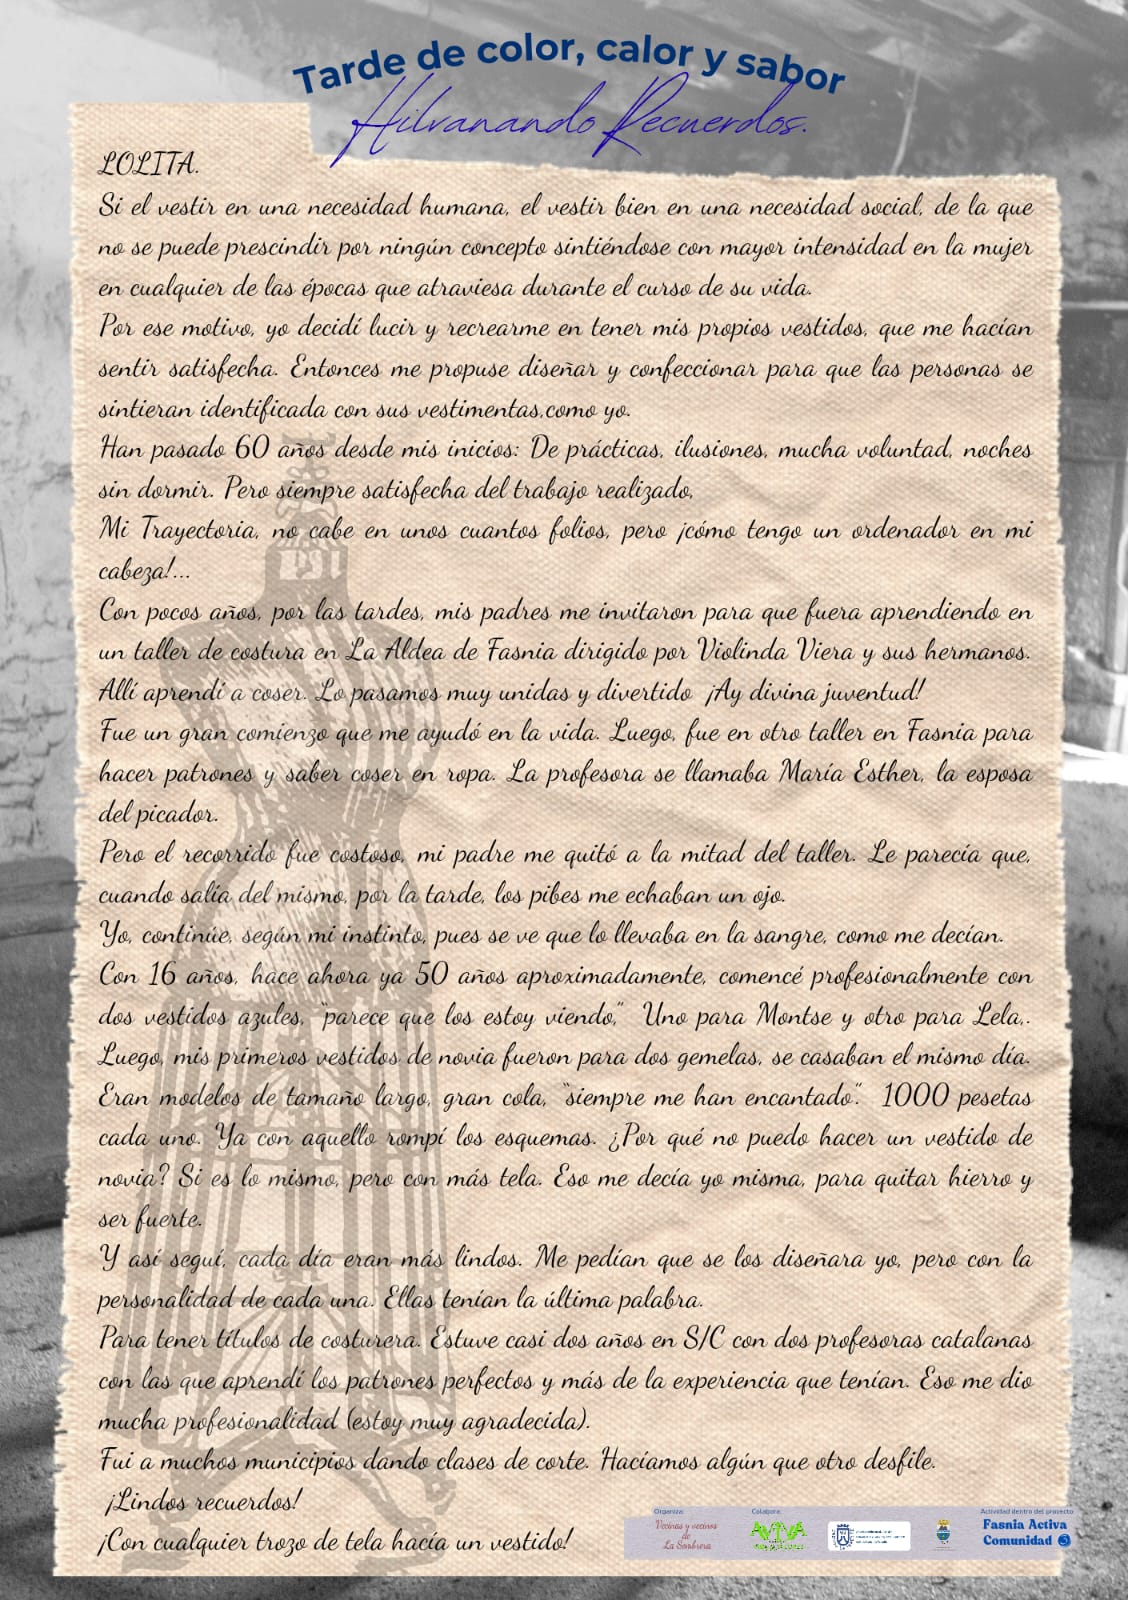 Tarde de color, calor y sabor
Hilvanando Recuerdos.
LOLITA.
Si el vestir en una necesidad humana, el vestir bien en una necesidad social, de la que
no se puede prescindir por ningún concepto sintiéndose con mayor intensidad en la mujer
en cualquier de las épocas que atraviesa durante el curso de su vida.
Por ese motivo, yo decidí lucir y recrearme en tener mis propios vestidos, que me hacían
sentir satisfecha. Entonces me propuse diseñar y confeccionar para que las personas se
sintieran identificada con sus vestimentas,como yo.
Han pasado 60 años desde mis inicios: De prácticas, ilusiones, mucha voluntad, noches
sin dormir. Pero siempre satisfecha del trabajo realizado,
Mi Trayectoria, no cabe en unos cuantos folios, pero ¡cómo tengo un ordenador en mi
cabeza!...
Con pocos años, por las tardes, mis padres me invitaron para que fuera aprendiendo en
un taller de costura en La Aldea de Fasnia dirigido por Violinda Viera y sus hermanos.
Allí aprendí a coser. Lo pasamos muy unidas y divertido ¡Ay divina juventud!
Fue un gran comienzo que me ayudó en la vida. Luego, fue en otro taller en Fasnia para
hacer patrones y saber coser en ropa. La profesora se llamaba María Esther, la esposa
del picador.
Pero el recorrido fue costoso, mi padre me quitó a la mitad del taller. Le parecía que,
cuando salía del mismo, por la tarde, los pibes me echaban un ojo.
Yo, continúe, según mi instinto, pues se ve que lo llevaba en la sangre, como me decían.
Con 16 años, hace ahora ya 50 años aproximadamente, comencé profesionalmente con
dos vestidos azules, “parece que los estoy viendo,” Uno para Montse y otro para Lela,.
Luego, mis primeros vestidos de novia fueron para dos gemelas, se casaban el mismo día.
Eran modelos de tamaño largo, gran cola, “siempre me han encantado”. 1000 pesetas
cada uno. Ya con aquello rompí los esquemas. ¿Por qué no puedo hacer un vestido de
novia? Si es lo mismo, pero con más tela. Eso me decía yo misma, para quitar hierro y
ser fuerte.
Y así seguí, cada día eran más lindos. Me pedían que se los diseñara yo, pero con la
personalidad de cada una. Ellas tenían la última palabra.
Para tener títulos de costurera. Estuve casi dos años en S/C con dos profesoras catalanas
con las que aprendí los patrones perfectos y más de la experiencia que tenían. Eso me dio
mucha profesionalidad (estoy muy agradecida).
Fui a muchos municipios dando clases de corte. Hacíamos algún que otro desfile.
¡Lindos recuerdos!
¡Con cualquier trozo de tela hacía un vestido!
Organiza:
Vecinas y vecinos
de
La Sombrera
Colabora:
AVIVA
Actividad dentro del proyecto
Fasnia Activa
Comunidad